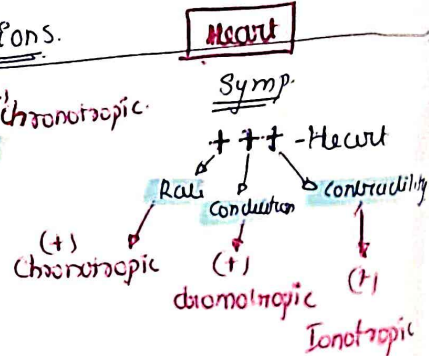 Cons.
Heart
Chronotropic.
Symp.
+ + + - Heart
Rate
Conduction
Contractility
(+)
Chronotropic
(+)
dromotropic
(+)
Ionotropic